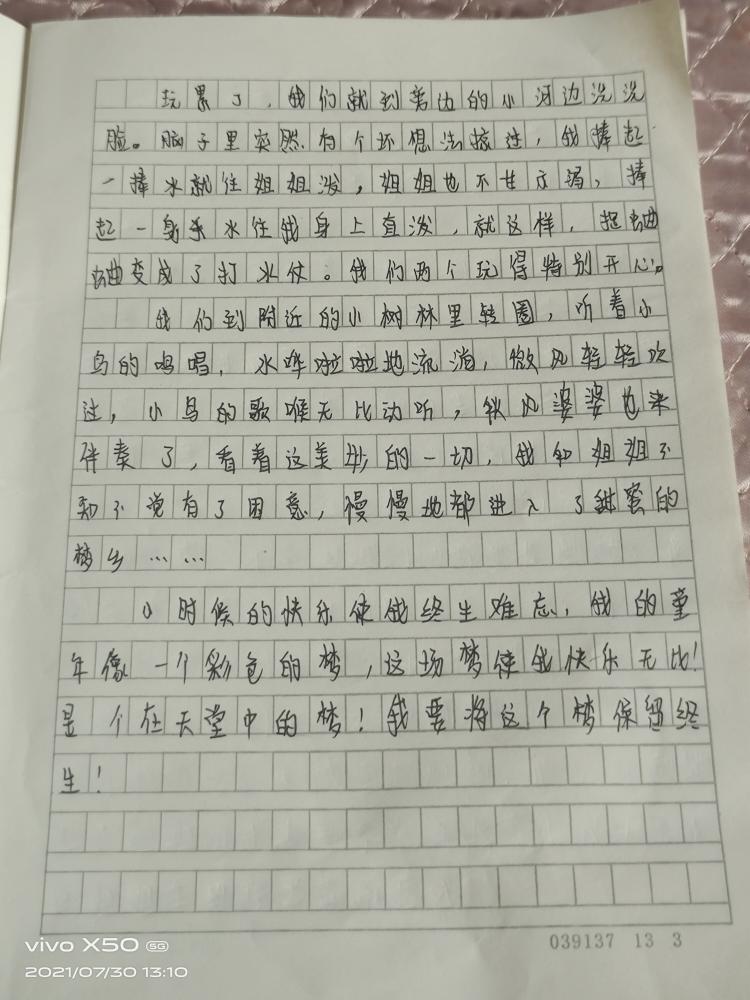 玩累了，我们就到旁边的小河边洗洗
脸。脑子里突然有个坏想法掠过，我捧起
一捧水就往姐姐泼，姐姐也不甘示弱，捧
起一身水往我身上直泼，就这样，捉蛐
蛐变成了打水仗。我们两个玩得特别开心。
我们到附近的小树林里转圈，听着小
鸟的鸣唱，水哗啦啦地流淌，微风轻轻吹
过，小鸟的歌喉无比动听，秋风婆婆也来
伴奏了，看着这美妙的一切，我和姐姐不
知不觉有了困意，慢慢地都进入了甜蜜的
梦乡……
小时候的快乐使我终生难忘，我的童
年像一个彩色的梦，这场梦使我快乐无比！
是个在天堂中的梦！我要将这个梦保留终
生！
039137 13 3
vivo X50 5G
2021/07/30 13:10